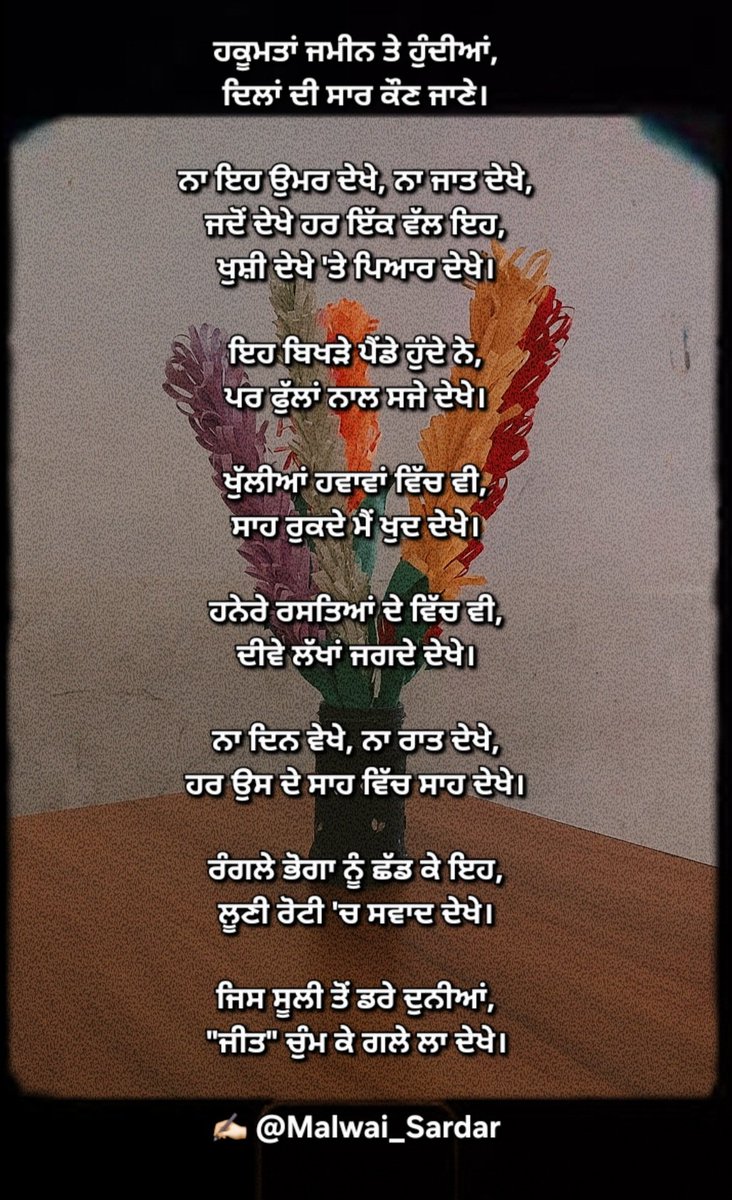 ਹਕੂਮਤਾਂ ਜਮੀਨ ਤੇ ਹੁੰਦੀਆਂ,
ਦਿਲਾਂ ਦੀ ਸਾਰ ਕੌਣ ਜਾਣੇ।
ਨਾ ਇਹ ਉਮਰ ਦੇਖੇ, ਨਾ ਜਾਤ ਦੇਖੇ,
ਜਦੋਂ ਦੇਖੇ ਹਰ ਇੱਕ ਵੱਲ ਇਹ,
ਖੁਸ਼ੀ ਦੇਖੇ 'ਤੇ ਪਿਆਰ ਦੇਖੇ।
ਇਹ ਬਿਖੜੇ ਪੈਂਡੇ ਹੁੰਦੇ ਨੇ,
ਪਰ ਫੁੱਲਾਂ ਨਾਲ ਸਜੇ ਦੇਖੇ।
ਖੁੱਲੀਆਂ ਹਵਾਵਾਂ ਵਿੱਚ ਵੀ,
ਸਾਹ ਰੁਕਦੇ ਮੈਂ ਖੁਦ ਦੇਖੇ।
ਹਨੇਰੇ ਰਸਤਿਆਂ ਦੇ ਵਿੱਚ ਵੀ,
ਦੀਵੇ ਲੱਖਾਂ ਜਗਦੇ ਦੇਖੇ।
ਨਾ ਦਿਨ ਵੇਖੇ, ਨਾ ਰਾਤ ਦੇਖੇ,
ਹਰ ਉਸ ਦੇ ਸਾਹ ਵਿੱਚ ਸਾਹ ਦੇਖੇ।
ਰੰਗਲੇ ਭੋਗਾ ਨੂੰ ਛੱਡ ਕੇ ਇਹ,
ਲੂਣੀ ਰੋਟੀ 'ਚ ਸਵਾਦ ਦੇਖੇ।
ਜਿਸ ਸੂਲੀ ਤੋਂ ਡਰੇ ਦੁਨੀਆਂ,
"ਜੀਤ" ਚੁੰਮ ਕੇ ਗਲੇ ਲਾ ਦੇਖੇ।
✍🏻 @Malwai_Sardar